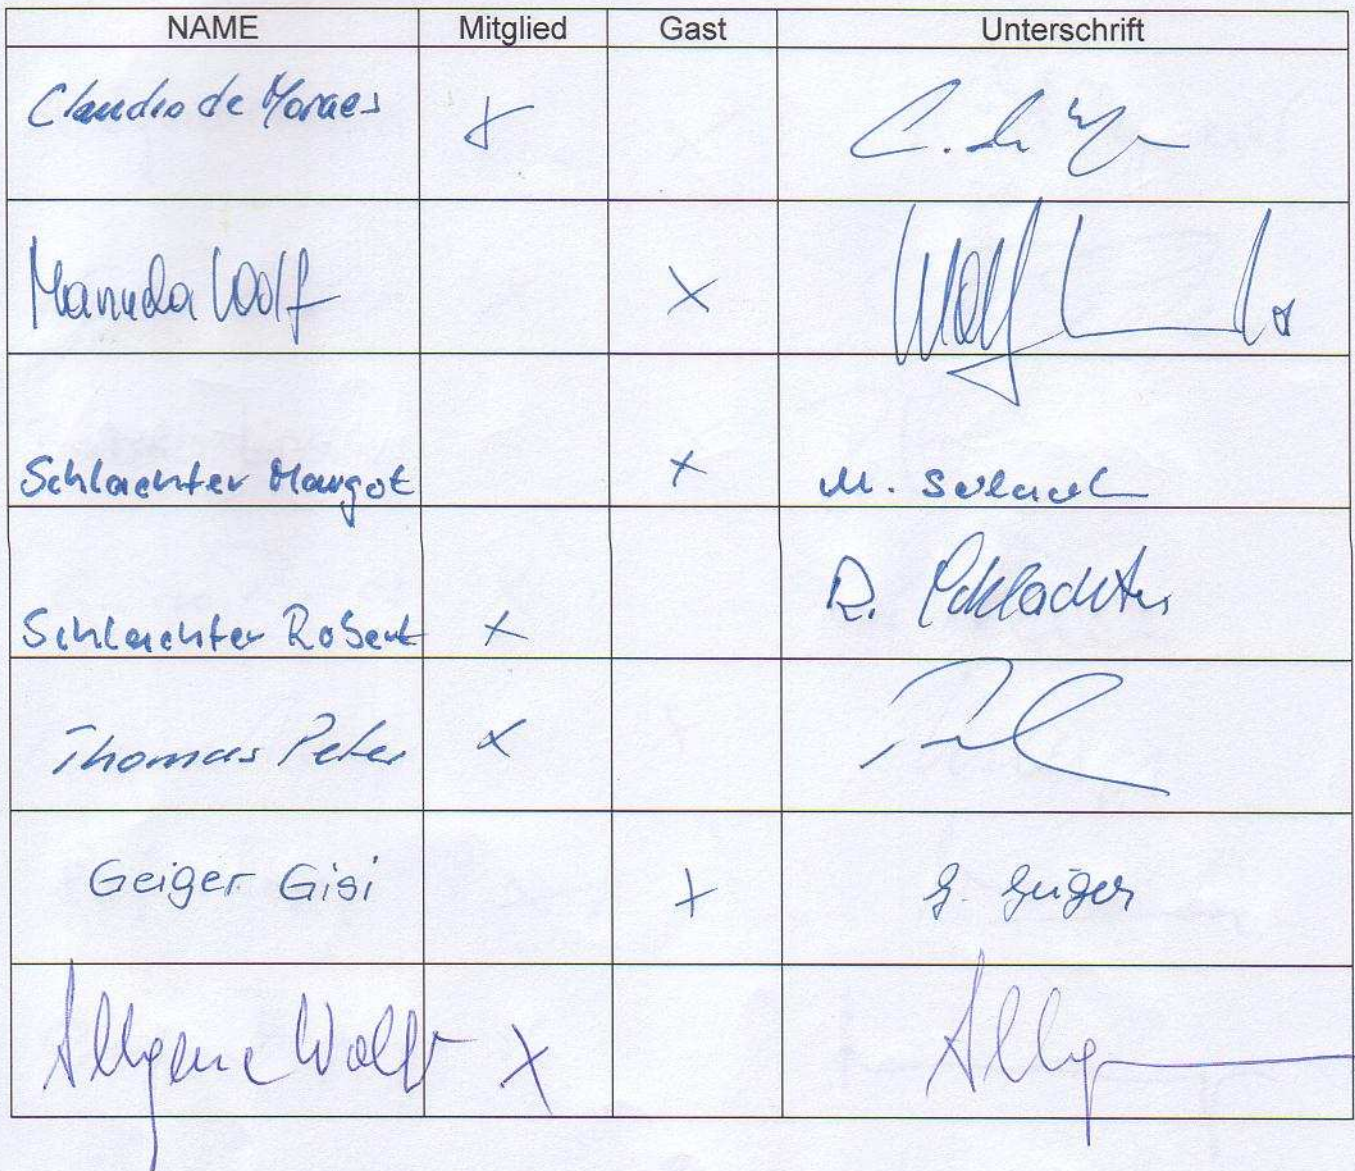 NAME Mitglied Gast Unterschrift
Claudio de Moraes x C. de
Manuela Wolf x Wolf
Schlachter Margot x M. Schlacht
Schlachter Robert x R. Schlachter
Thomas Peter x
Geiger Gisi x G. Geiger
x